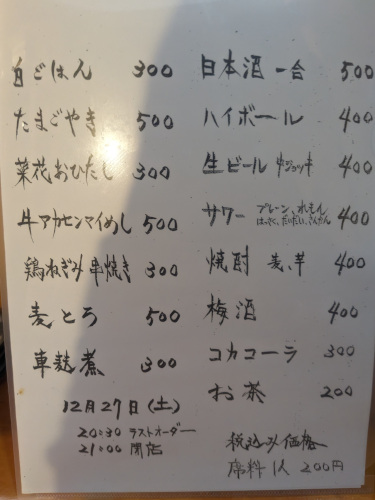 白ごはん 300
たまごやき 500
菜花おひたし 300
牛アカセンマイめし 500
鶏ねぎみ串焼き 300
麦とろ 500
車麩煮 300
12月27日(土)
20:30 ラストオーダー
21:00 閉店
日本酒 一合 500
ハイボール 400
生ビール 中ジョッキ 400
サワー プレーン、れもん 400
はっさく、だいだい、きんかん
焼酎 麦、芋 400
梅酒 400
コカコーラ 300
お茶 200
税込み価格
席料1人 200円